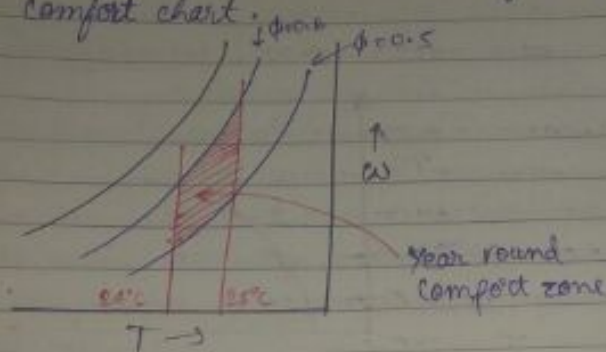 Comfort chart.
ϕ=0.6
ϕ=0.5
ω
year round
comfort zone
25°C
T →